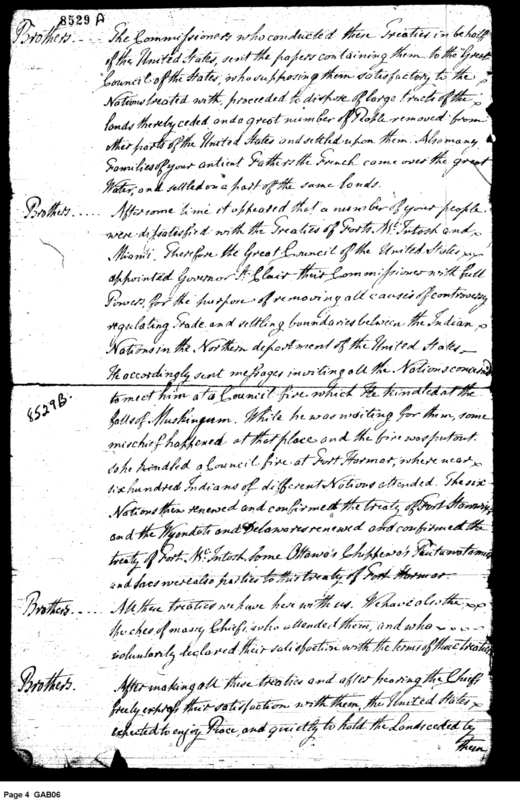 8529 A
Brothers.... The Commissioners who conducted these Treaties in behalf
of the United States, sent the papers containing them to the Great
Council of the States, who supposing them satisfactory to the
Nations treated with, proceeded to dispose of large tracts of the
lands thereby ceded and a great number of People removed from
other parts of the United States and settled upon them. Also many
Families of your antient Fathers the French came over the great
Water, and settled on a part of the same lands.
Brothers..... After some time it appeared that a number of your people
were dissatisfied with the Treaties of Forts Mc. Intosh and
Miami. Therefore the Great Council of the United States
appointed Governor St. Clair their Commissioner with full
Powers, for the purpose of removing all causes of controversy
regulating Trade and settling boundaries between the Indian
Nations in the Northern department of the United States—
He accordingly sent messages inviting all the Nations concerned
8529 B.
to meet him at a Council fire which He kindled at the
falls of Muskingum. While he was waiting for them, some
mischief happened at that place and the fire was put out.
so he kindled a Council fire at Fort Harmar, where near
six hundred Indians of different Nations attended. The six
Nations then renewed and confirmed the treaty of Fort Stanwix
and the Wyandots and Delawares renewed and confirmed the
treaty of Fort Mc. Intosh. Some Ottawa's Chippewa's
and Sacs were also parties to this treaty of Fort Harmar.
Brothers.... All these treaties we have here with us. We have also the
speeches of many Chiefs who attended them, and who
voluntarily declared their satisfaction with the terms of these treaties
Brothers. After making all these treaties and after hearing the Chiefs
freely express their satisfaction with them, the United States
expected to enjoy Peace, and quietly to hold the Lands ceded by
them
Page 4 GAB06